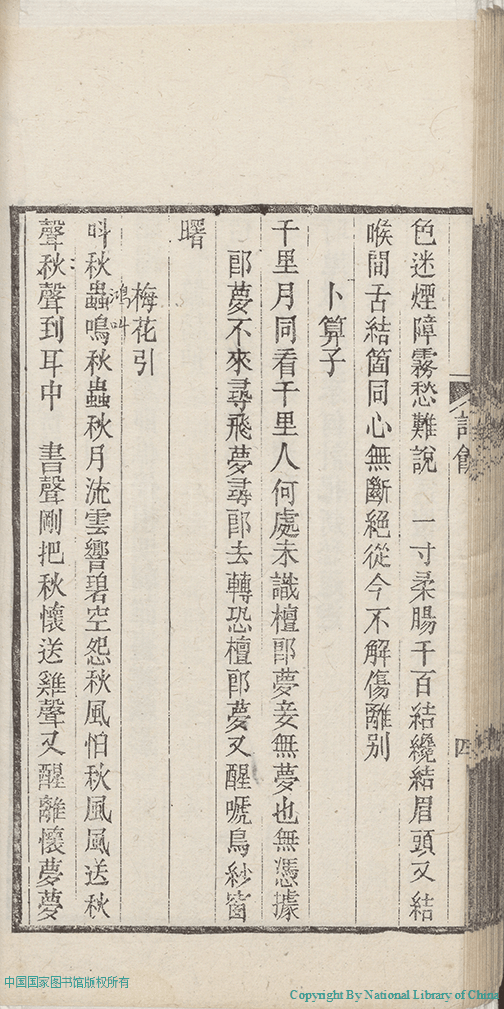 色迷煙障霧愁難說　一寸柔腸千百結纔結眉頭又結
喉間舌結箇同心無斷絕從今不解傷離别
卜算子
千里月同看千里人何處未識檀郎夢妾無夢也無憑據
郎夢不來尋飛夢尋郎去轉恐檀郎夢又醒嗁烏紗窗
曙
梅花引
鴻叫
呌秋蟲鳴秋蟲秋月流雲響碧空怨秋風怕秋風風送秋
聲秋聲到耳中　書聲剛把秋懷送雞聲又醒離懷夢夢
四
中国国家图书馆版权所有
Copyright By National Library of China